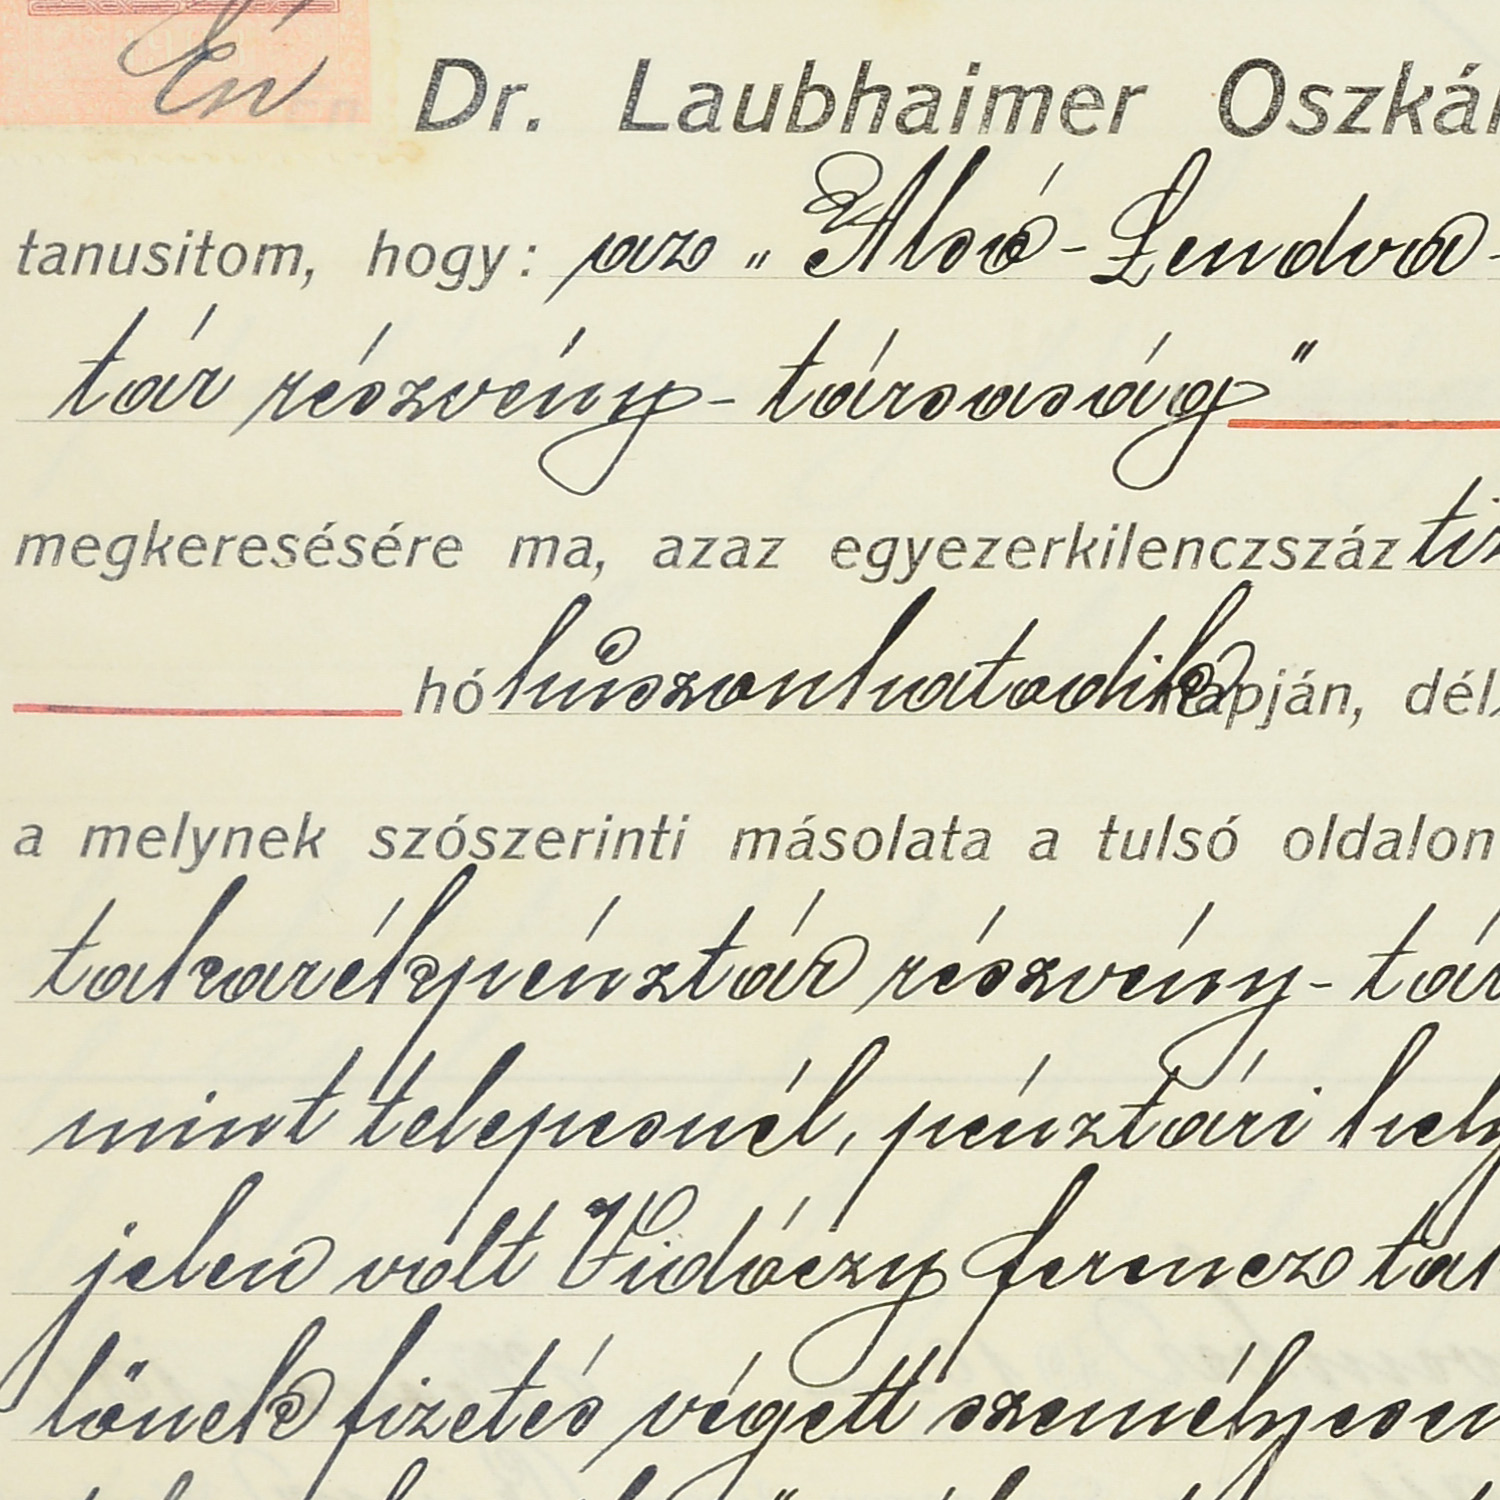 Én Dr. Laubhaimer Oszkár
tanusitom, hogy: az „Alsó-Lendva-
tár részvény-társaság"
megkeresésére ma, azaz egyezerkilenczszáz tiz
hó húszonhatodik napján, dél
a melynek szószerinti másolata a tulsó oldalon
takarékpénztár részvény-tár
mint telepesnél, pénztári hely
jelen volt Vidóczy ferencz tal
lönek fizetés végett személyesen